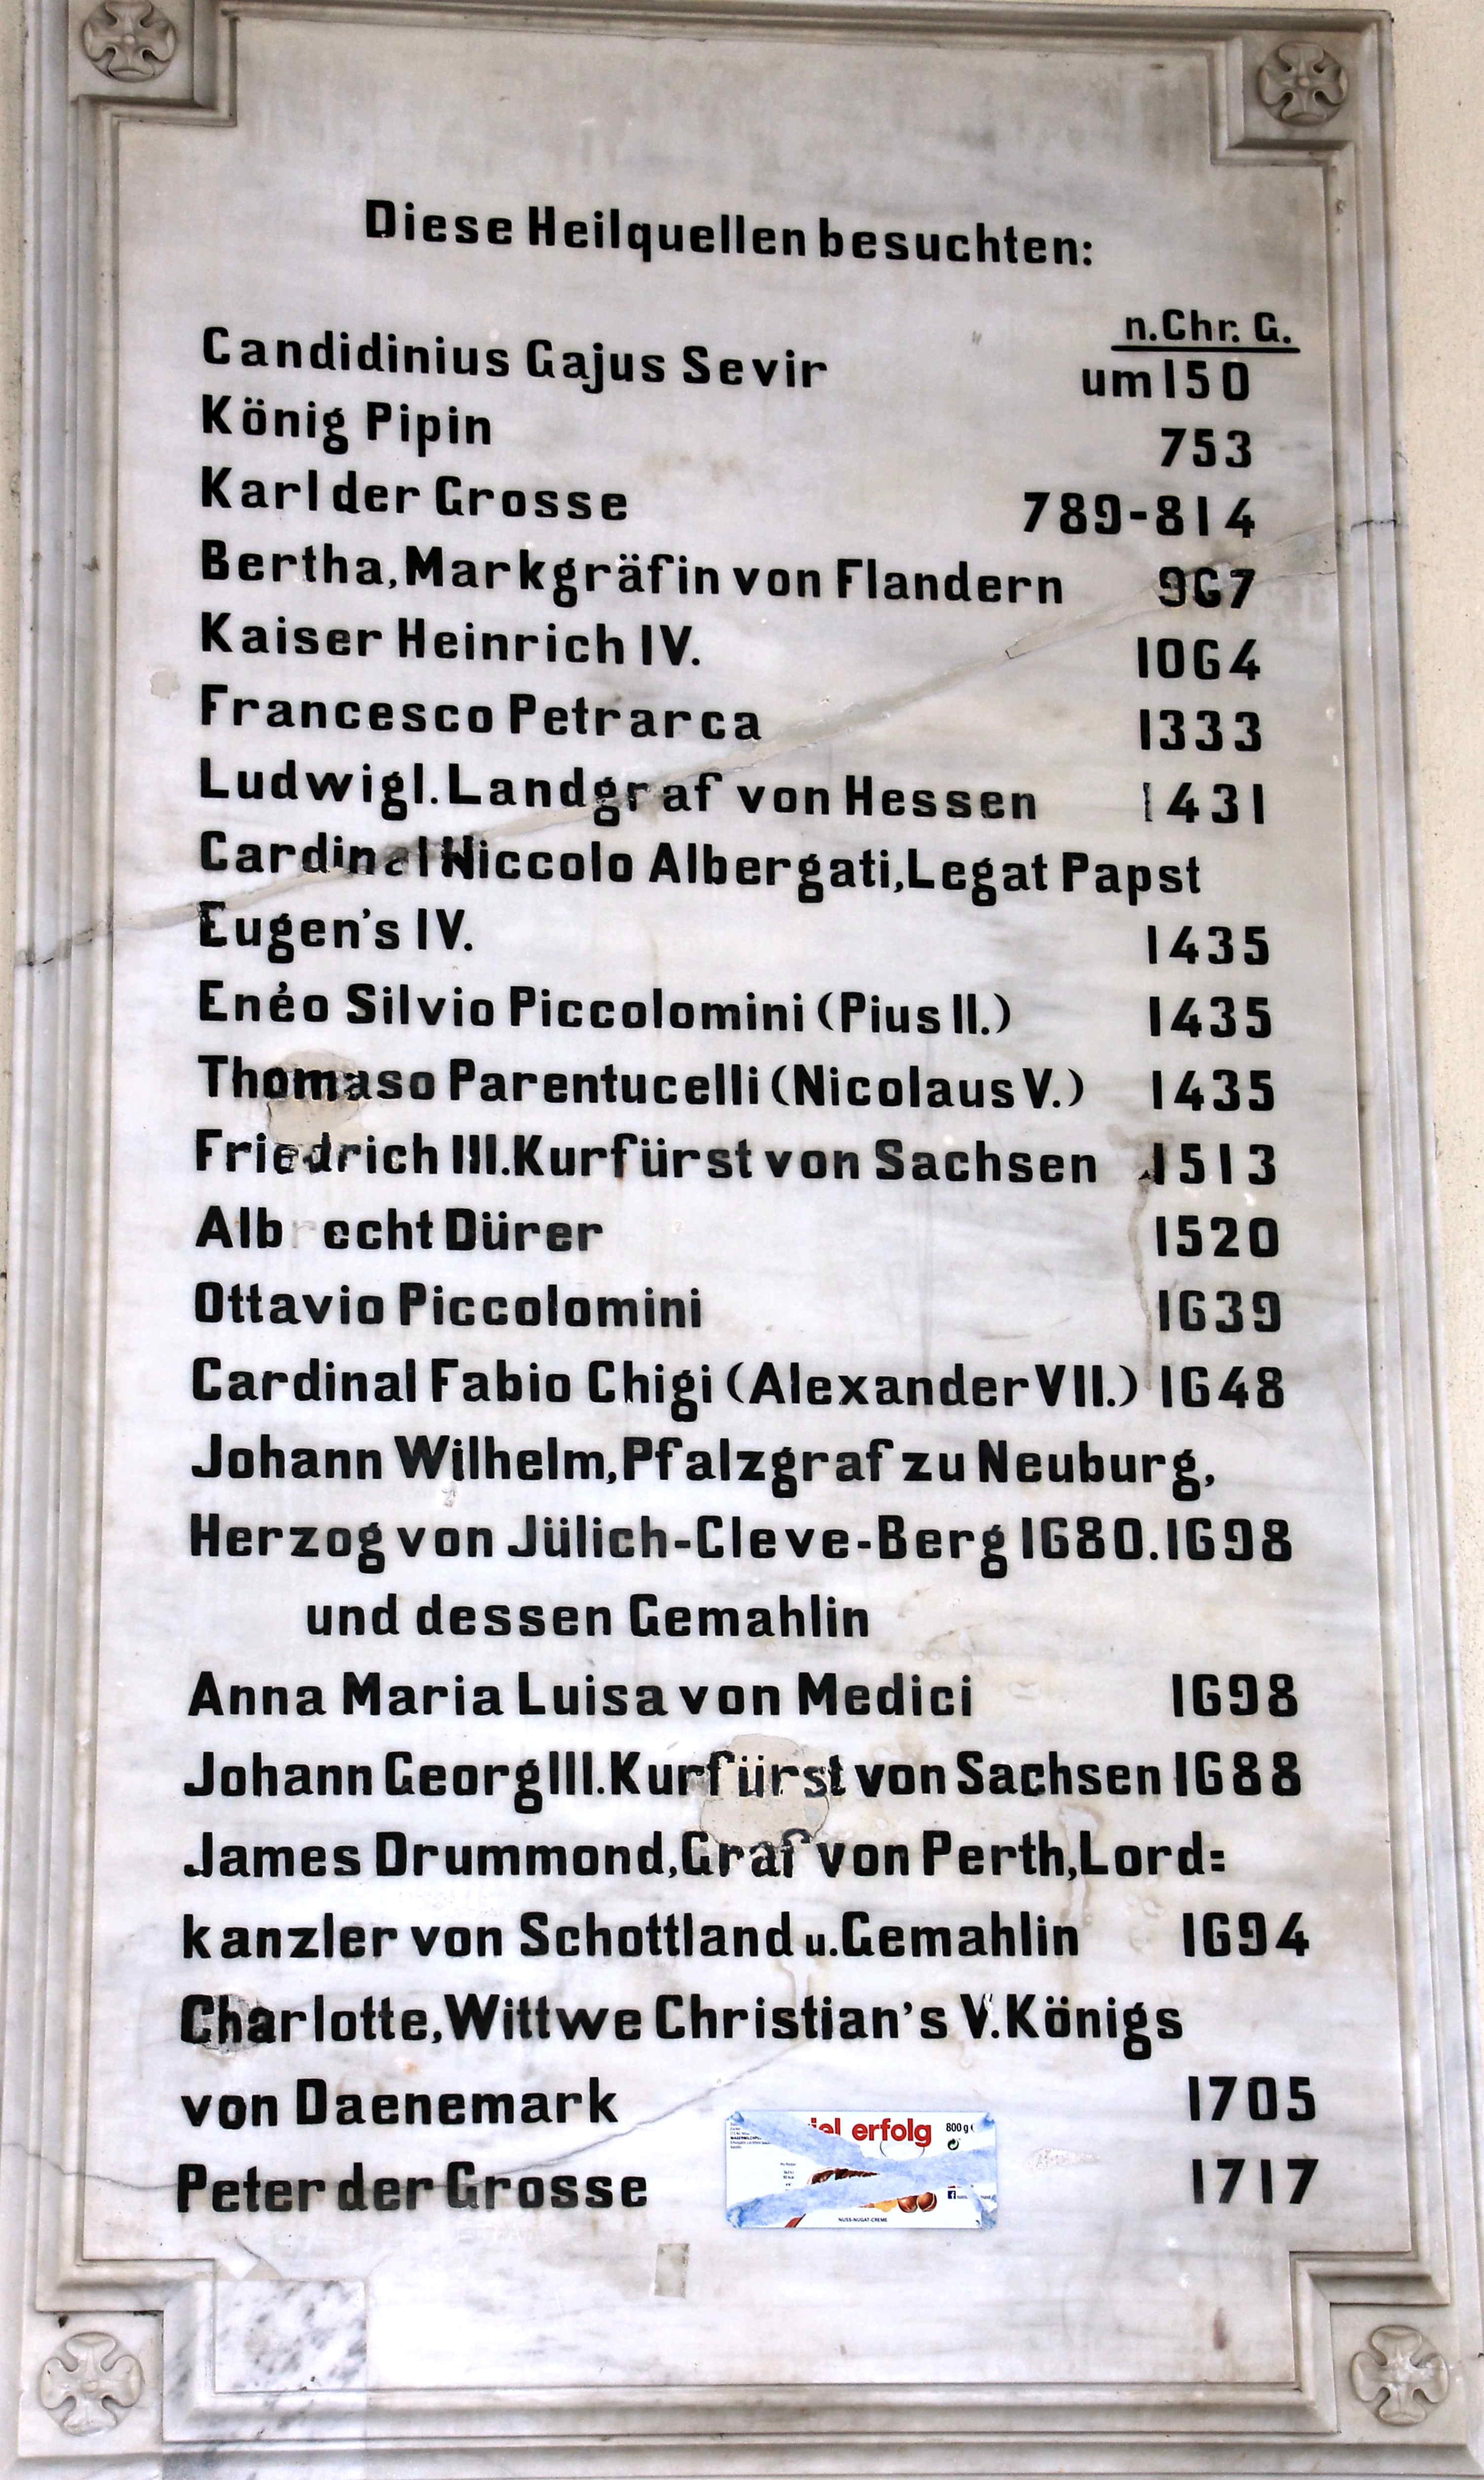 Diese Heilquellen besuchten:
n.Chr. G.
Candidinius Gajus Sevir um 150
König Pipin 753
Karl der Grosse 789-814
Bertha, Markgräfin von Flandern 967
Kaiser Heinrich IV. 1064
Francesco Petrarca 1333
Ludwig I. Landgraf von Hessen 1431
Cardinal Niccolo Albergati, Legat Papst
Eugen's IV. 1435
Enéo Silvio Piccolomini (Pius II.) 1435
Thomaso Parentucelli (Nicolaus V.) 1435
Friedrich III. Kurfürst von Sachsen 1513
Albrecht Dürer 1520
Ottavio Piccolomini 1639
Cardinal Fabio Chigi (Alexander VII.) 1648
Johann Wilhelm, Pfalzgraf zu Neuburg,
Herzog von Jülich-Cleve-Berg 1680. 1698
und dessen Gemahlin
Anna Maria Luisa von Medici 1698
Johann Georg III. Kurfürst von Sachsen 1688
James Drummond, Graf von Perth, Lord=
kanzler von Schottland u. Gemahlin 1694
Charlotte, Wittwe Christian's V. Königs
von Daenemark 1705
Peter der Grosse 1717
erfolg 800 g
NUSS-NUGAT-CREME